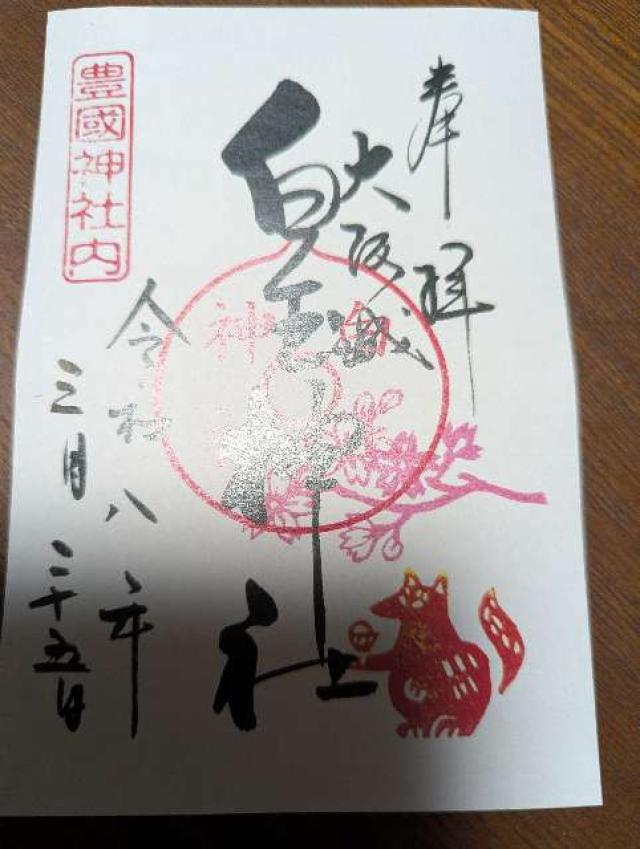 奉拝
大阪城
白玉神社
令和八年
三月二十五日
豊國神社内